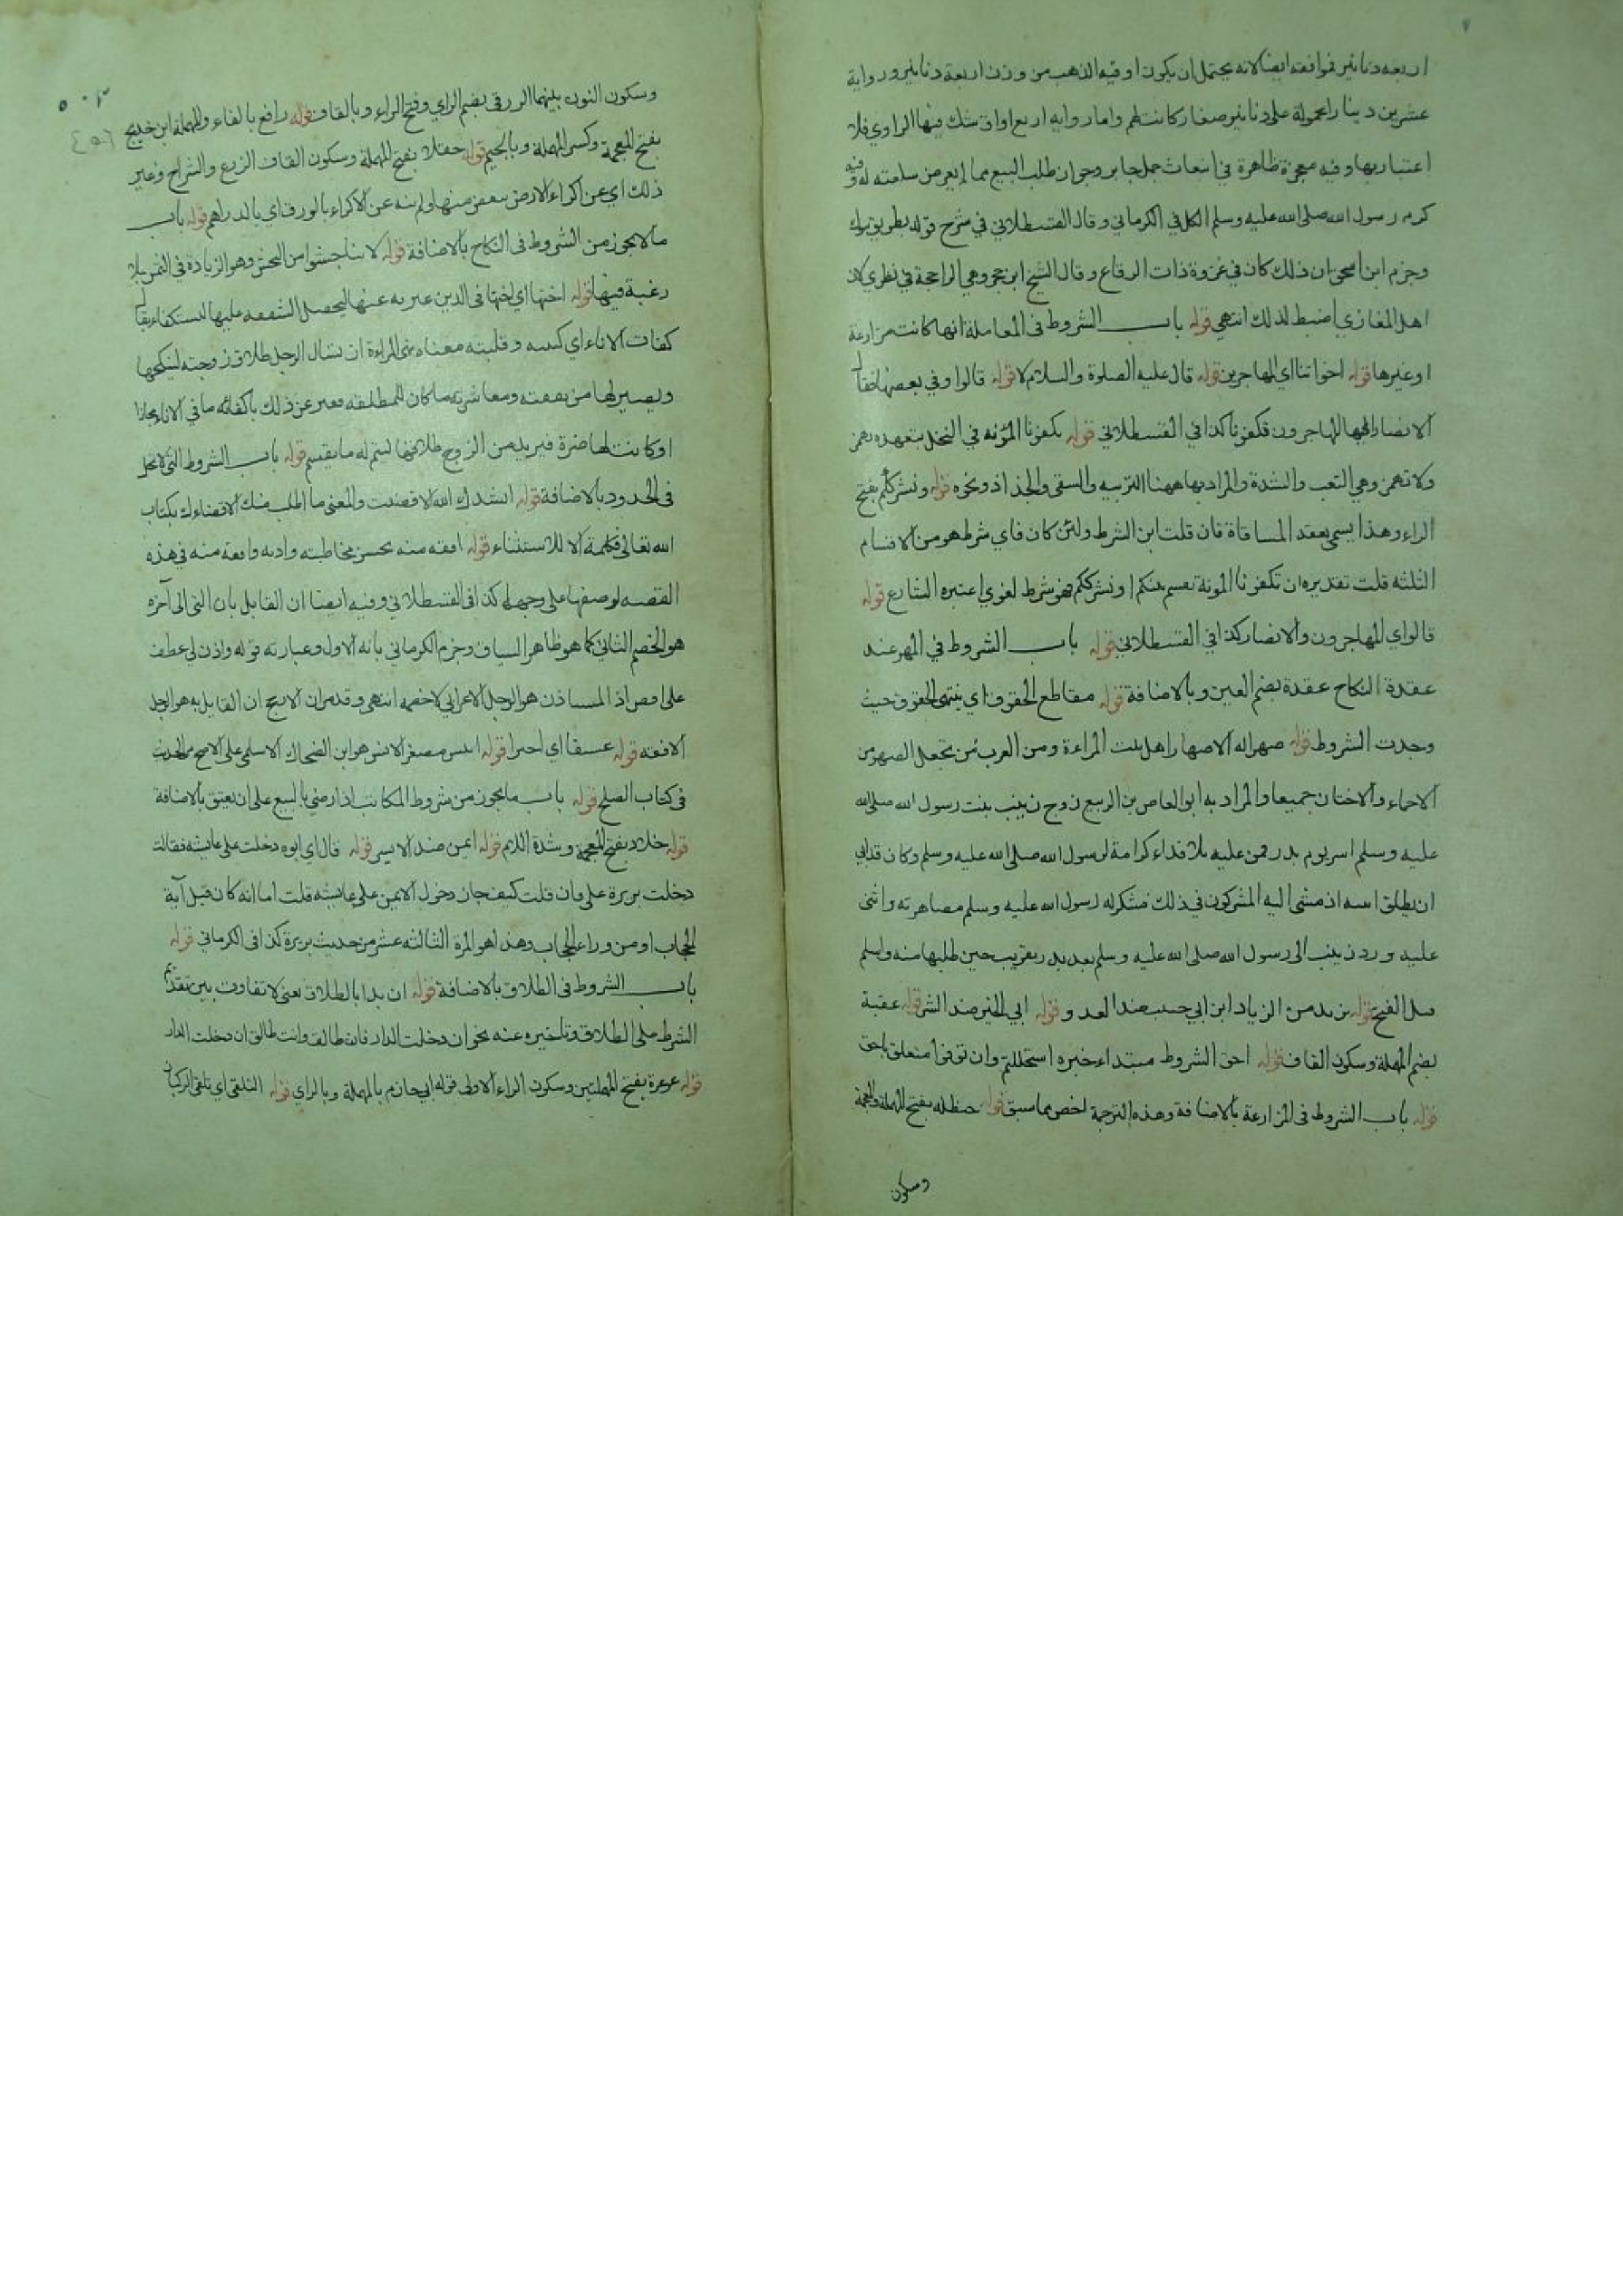 اربعة دنانير فوافقه ايضا لانه يحتمل ان يكون اوقية الذهب من وزن اربعة دنانير ورواية
عشرين دينارا محمولة على دنانير صغار كانت لهم واما رواية اربع اواق شك فيها الراوي فلا
اعتبار بها وفيه معجزة ظاهرة في انبعاث جمل جابر وجواز طلب البيع مما لم يعرض سلعته له وفيه
كرم رسول الله صلى الله عليه وسلم الكل في الكرماني وقال القسطلاني في شرح قوله بطريق تبوك
وجزم ابن اسحق ان ذلك كان في غزوة ذات الرقاع وقال الشيخ ابن حجر وهي الراجحة في نظري لان
اهل المغازي اضبط لذلك انتهى قوله باب الشروط في المعاملة انها كانت مزارعة
او غيرها قوله اخواننا اي المهاجرين قوله قال عليه الصلوة والسلام لا قوله قالوا وفي بعضها فقال
الانصار ايها المهاجرون تكفونا كذا في القسطلاني قوله تكفونا المؤنه في النخل بتعهده بهمز
ولا تهمز وهي التعب والشدة والمراد بها ههنا التربيه والسقي والجذاذ ونحوه قوله ونشرككم بفتح
الراء وهذا يسمى بعقد المساقاة فان قلت اين الشرط ولئن كان فاي شرط هو من الاقسام
الثلثه قلت تقديره ان تكفونا المونة نقسم بينكم او نشرككم فهو شرط لغوي اعتبره الشارع قوله
قالوا اي المهاجرون والانصار كذا في القسطلاني قوله باب الشروط في المهر عند
عقدة النكاح عقدة بضم العين وبالاضافة قوله مقاطع الحقوق اي ينتهى الحقوق حيث
وجدت الشروط قوله صهرا له الاصهار اهل بيت المراءة ومن العرب من تجعل الصهر من
الاحماء والاختان جميعا والمراد به ابو العاص بن الربيع زوج زينب بنت رسول الله صلى الله
عليه وسلم اسر يوم بدر فمن عليه بلا فداء كرامة لرسول الله صلى الله عليه وسلم وكان قد ابى
ان يطلق اسه اذ مشى اليه المشركون في ذلك فشكر له رسول الله عليه وسلم مصاهرته واثنى
عليه ورد زينب الى رسول الله صلى الله عليه وسلم بعد بدر بقريب حين طلبها منه واسلم
قبل الفتح قوله يزيد من الزياد ابن ابي حبيب ضد العدو قوله ابي الخير ضد الشر قوله عقبة
بضم المهملة وسكون القاف قوله احق الشروط مبتداء خبره استحللتم وان توفوا متعلق باحق
قوله باب الشروط في المزارعة بالاضافة وهذه الترجمة اخص مما سبق قوله حنظله بفتح المهملة والمعجمة
وسكون
وسكون النون بينهما الزرقي بضم الزاي وفتح الراء وبالقاف قوله رافع بالفاء والمهملة ابن خديج
بفتح المعجمة وكسر المهملة وبالجيم قوله حقلا بفتح المهملة وسكون القاف الزرع والشراح وغير
ذلك اي عن اكراء الارض ببعض منها ولم ينه عن الاكراء بالورق اي بالدراهم قوله باب
ما لا يجوز من الشروط في النكاح بالاضافة قوله لا تناجشوا من النجش وهو الزيادة في الثمن بلا
رغبة فيها قوله اختها اي اختها في الدين عبر به عنها ليحصل الشفقه عليها لتستكفاء يقال
كفات الاناء اي كببه وقلبته معناه نهى المراءة ان تسال الرجل طلاق زوجته لينكحها
ويصير لها من نفقته ومعاشرته ما كان للمطلقه فعبر عن ذلك باكفائه ما في الاناء مجازا
او كانت لها ضرة فيريد من الزوج طلاقها ليتم له ما يقسم قوله باب الشروط التي لا تحل
في الحدود بالاضافة قوله انشدك الله الا قضيت والمعنى ما اطلب منك الا قضاءك بكتاب
الله تعالى فكلمة الا للاستثناء قوله افقه منه بحسن مخاطبته وادبه وافقه منه في هذه
القصه لوصفها على وجهها كذا في القسطلاني وفيه ايضا ان القايل بان التى الى آخره
هو الخصم الثاني كما هو ظاهر السياق وجزم الكرماني بانه الاول وعبارته قوله واذن لي عطف
على اقض اذ المستاذن هو الرجل الاعرابي لا خصمه انتهى وقد مر ان الارجح ان القايل به هو الرجل
الافقه قوله عسيفا اي اجيرا قوله انيس مصغر الانس هو ابن الضحاك الاسلمي على الاصح مر الحديث
في كتاب الصلح قوله باب ما يجوز من شروط المكاتب اذا رضي بالبيع على ان يعتق بالاضافة
قوله خلاد بفتح المعجمة وشدة اللام قوله ايمن ضد الايسر قوله قال اي ابوه دخلت على عايشه فقالت
دخلت بريرة علي فان قلت كيف جاز دخول الايمن على عايشه قلت اما انه كان قبل آية
الحجاب او من وراء الحجاب وهذا هو المرة الثالثه عشر من حديث بريرة كذا في الكرماني قوله
باب الشروط في الطلاق بالاضافة قوله ان بدا بالطلاق يعني لا تفاوت بين تقدم
الشرط على الطلاق وتاخيره عنه نحو ان دخلت الدار فانت طالق وانت طالق ان دخلت الدار
قوله عرعرة بفتح المهملتين وسكون الراء الاولى قوله ابي حازم بالمهملة وبالزاي قوله التلقي اي تلقي الركبان